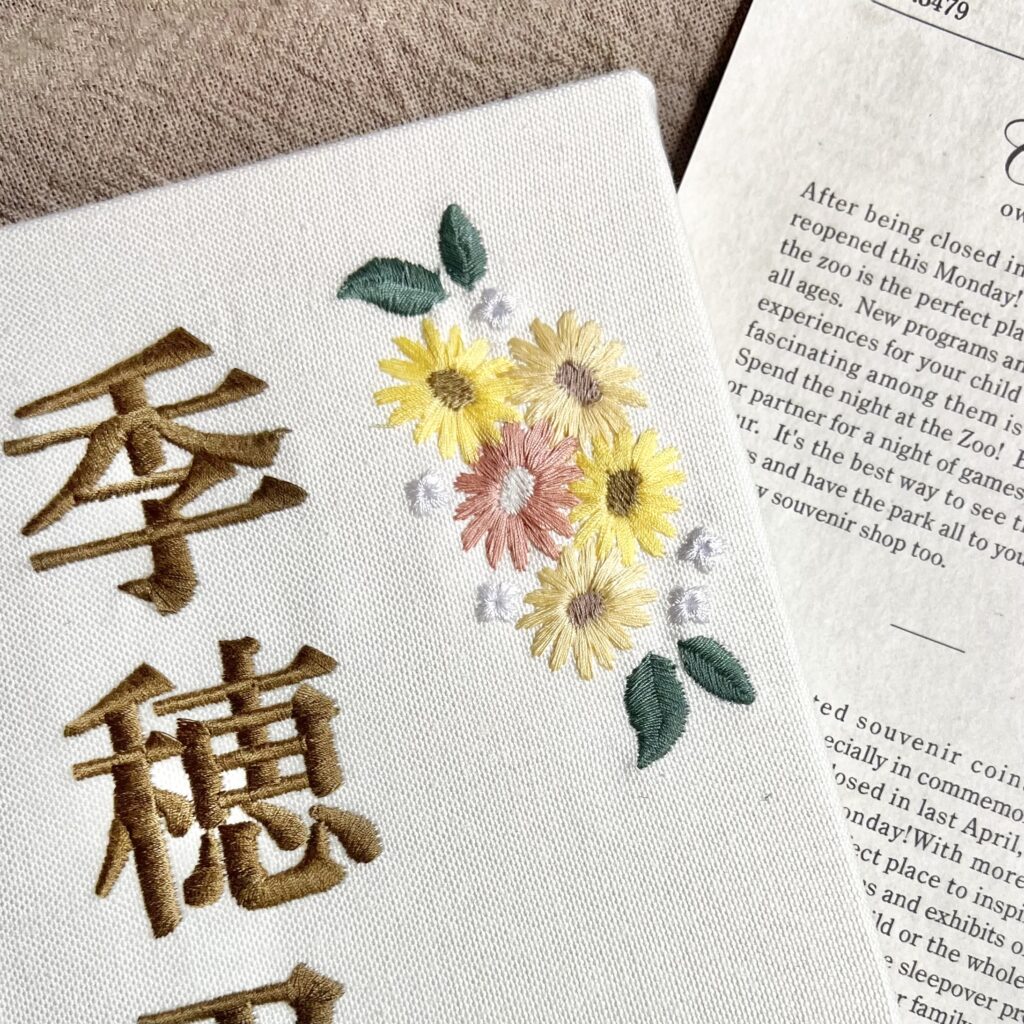 季
穂
.3479
After being closed in
reopened this Monday!
the zoo is the perfect pla
all ages. New programs an
experiences for your child
fascinating among them is
Spend the night at the Zoo!
or partner for a night of games
ur. It's the best way to see th
s and have the park all to you
y souvenir shop too.
ted souvenir coin
ecially in commemo
losed in last April,
onday!With more
ect place to inspi
s and exhibits o
ld or the whole
sleepover pr
r family